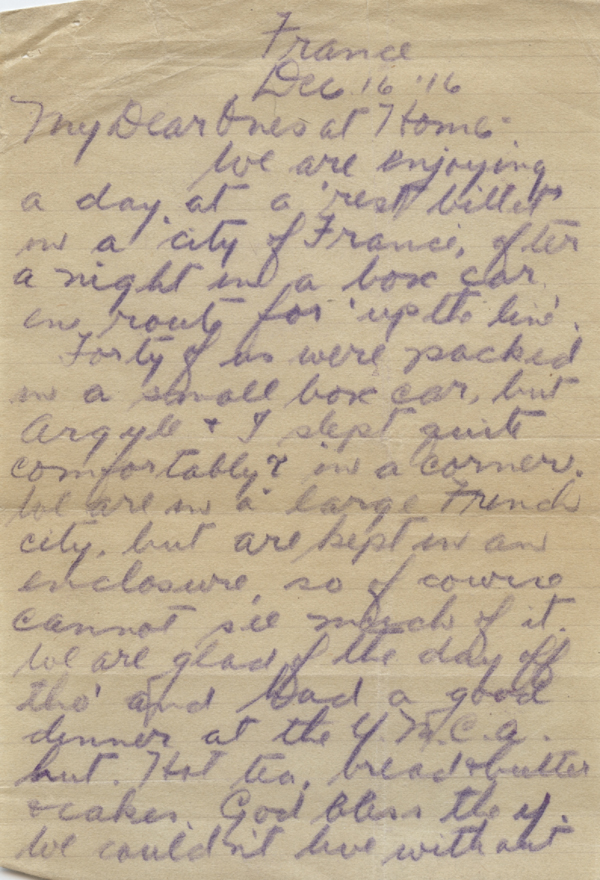 France
Dec. 16 '16
My Dear Ones at Home-
We are enjoying
a day at a 'rest billet'
in a city of France, after
a night in a box car
en route for 'up the line'.
Forty of us were packed
in a small box car, but
Argyle & I slept quite
comfortably? in a corner.
We are in a large French
city, but are kept in an
enclosure, so of course
cannot see much of it.
We are glad of the day off
tho' and had a good
dinner at the Y.M.C.A.
hut. Hot tea, bread & butter
& cakes. God bless the Y.
We couldn't live without